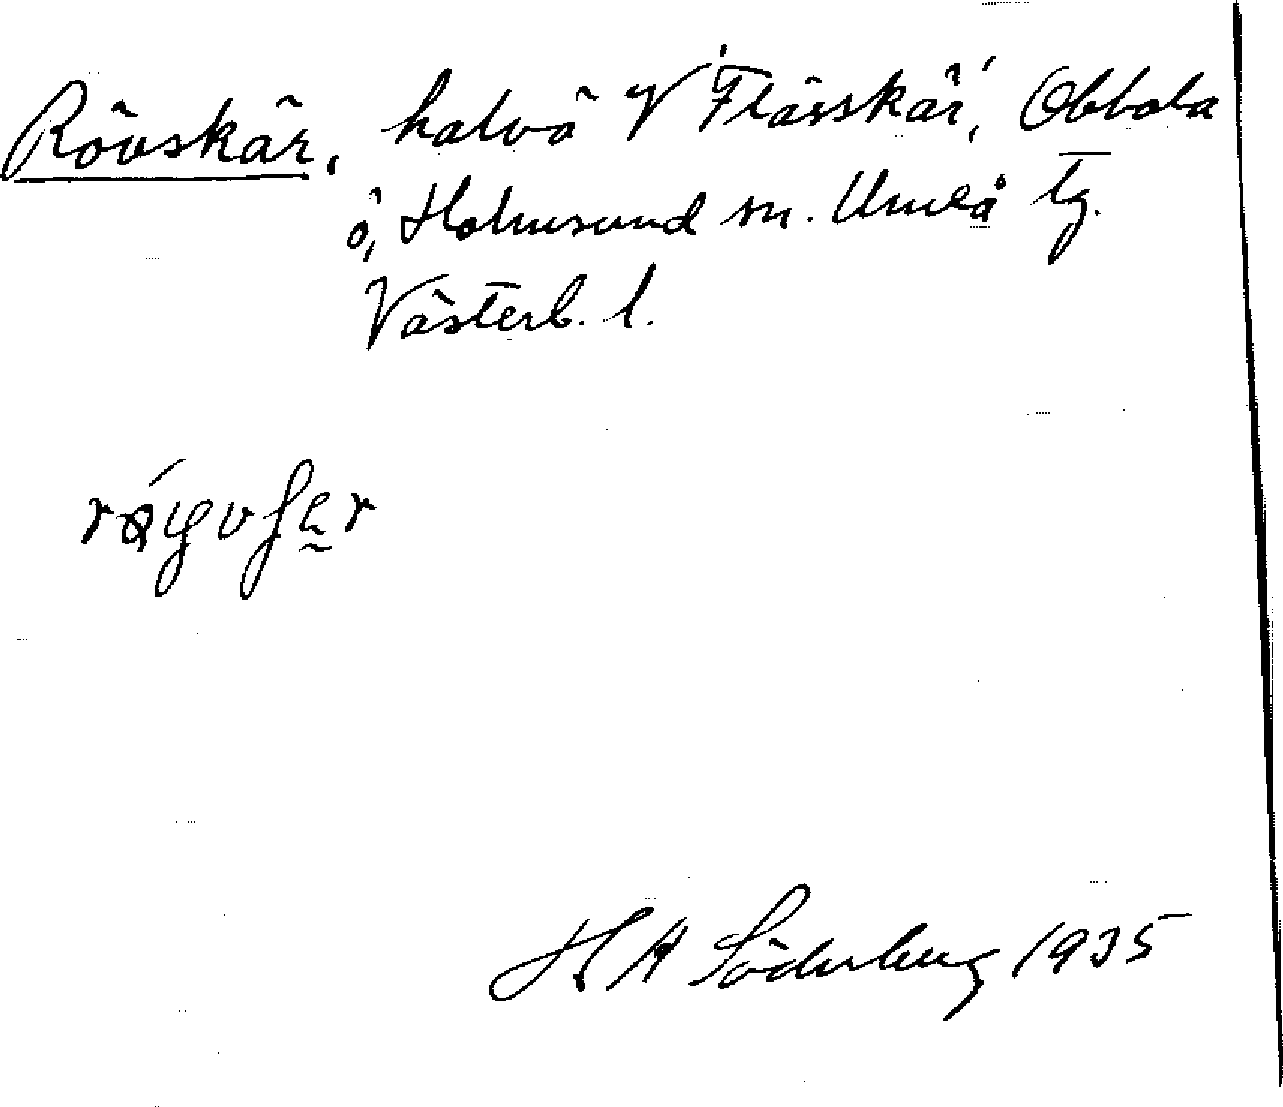 Rövskär, halvö V 'Flässkär', Obbola
ö, Holmsund sn. Umeå tg.
Västerb. l.
H A Söderberg 1935